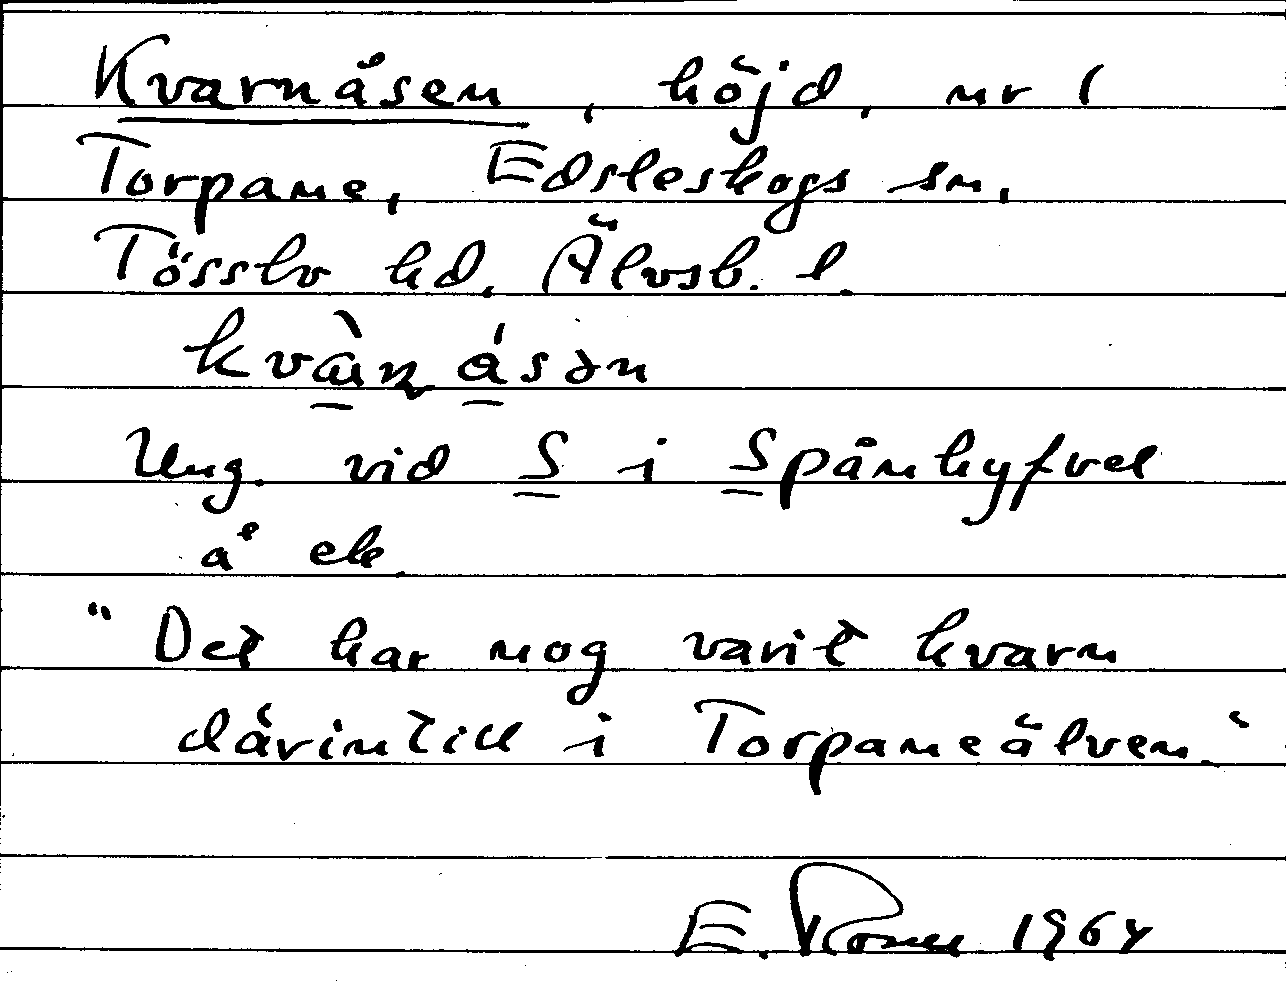 Kvarnåsen, höjd, nr 1
Torpane, Edsleskogs sn,
Tössbo hd, Älvsb. l.
Ung. vid S i Spånhyfvel
å ek
"Det har nog varit kvarn
därintill i Torpaneälven."
E. 1964